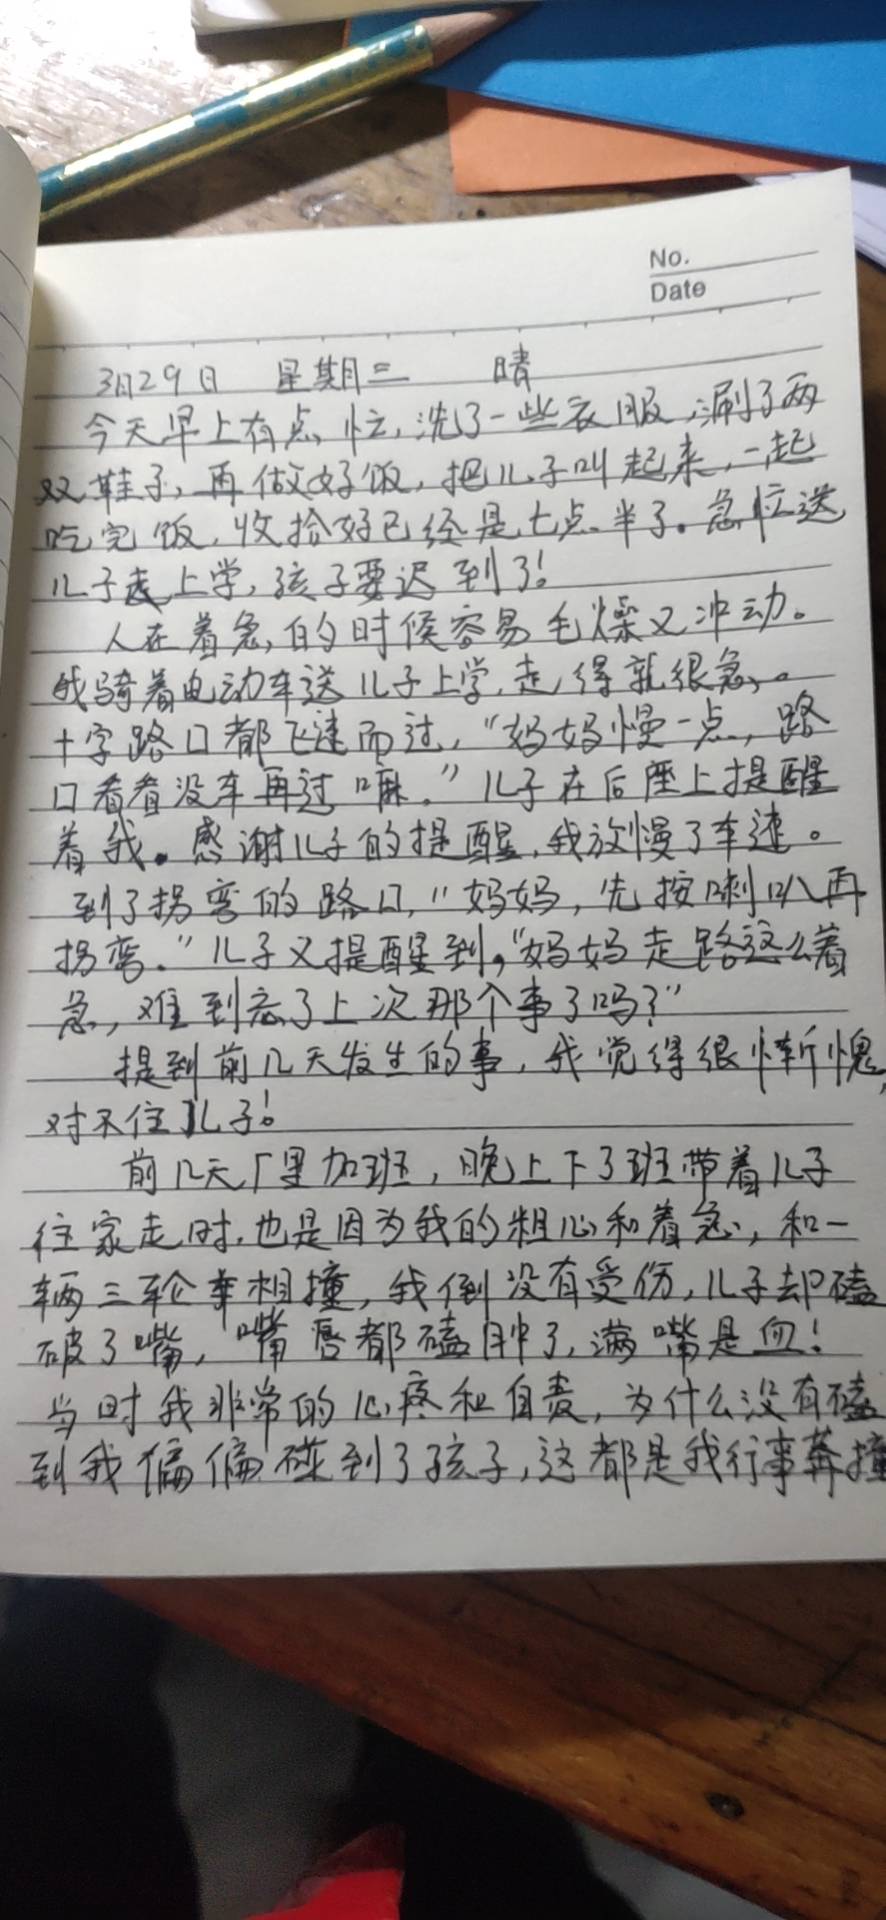 No.
Date
3月29日 星期二 晴
今天早上有点忙,洗了一些衣服,涮了两
双鞋子,再做好饭,把儿子叫起来,一起
吃完饭,收拾好已经是七点半了。急忙送
儿子去上学,孩子要迟到了!
人在着急,的时候容易毛燥又冲动。
我骑着电动车送儿子上学,走得就很急。
十字路口都飞速而过,“妈妈慢一点,路
口看看没车再过嘛。”儿子在后座上提醒
着我。感谢儿子的提醒,我放慢了车速。
到了拐弯的路口,“妈妈,先按喇叭再
拐弯。”儿子又提醒到,“妈妈走路这么着
急,难到忘了上次那个事了吗?”
提到前几天发生的事,我觉得很惭愧,
对不住儿子!
前几天厂里加班,晚上下了班带着儿子
往家走时,也是因为我的粗心和着急,和一
辆三轮车相撞,我倒没有受伤,儿子却磕
破了嘴,嘴唇都磕肿了,满嘴是血!
当时我非常的心疼和自责,为什么没有磕
到我偏偏碰到了孩子,这都是我行事莽撞